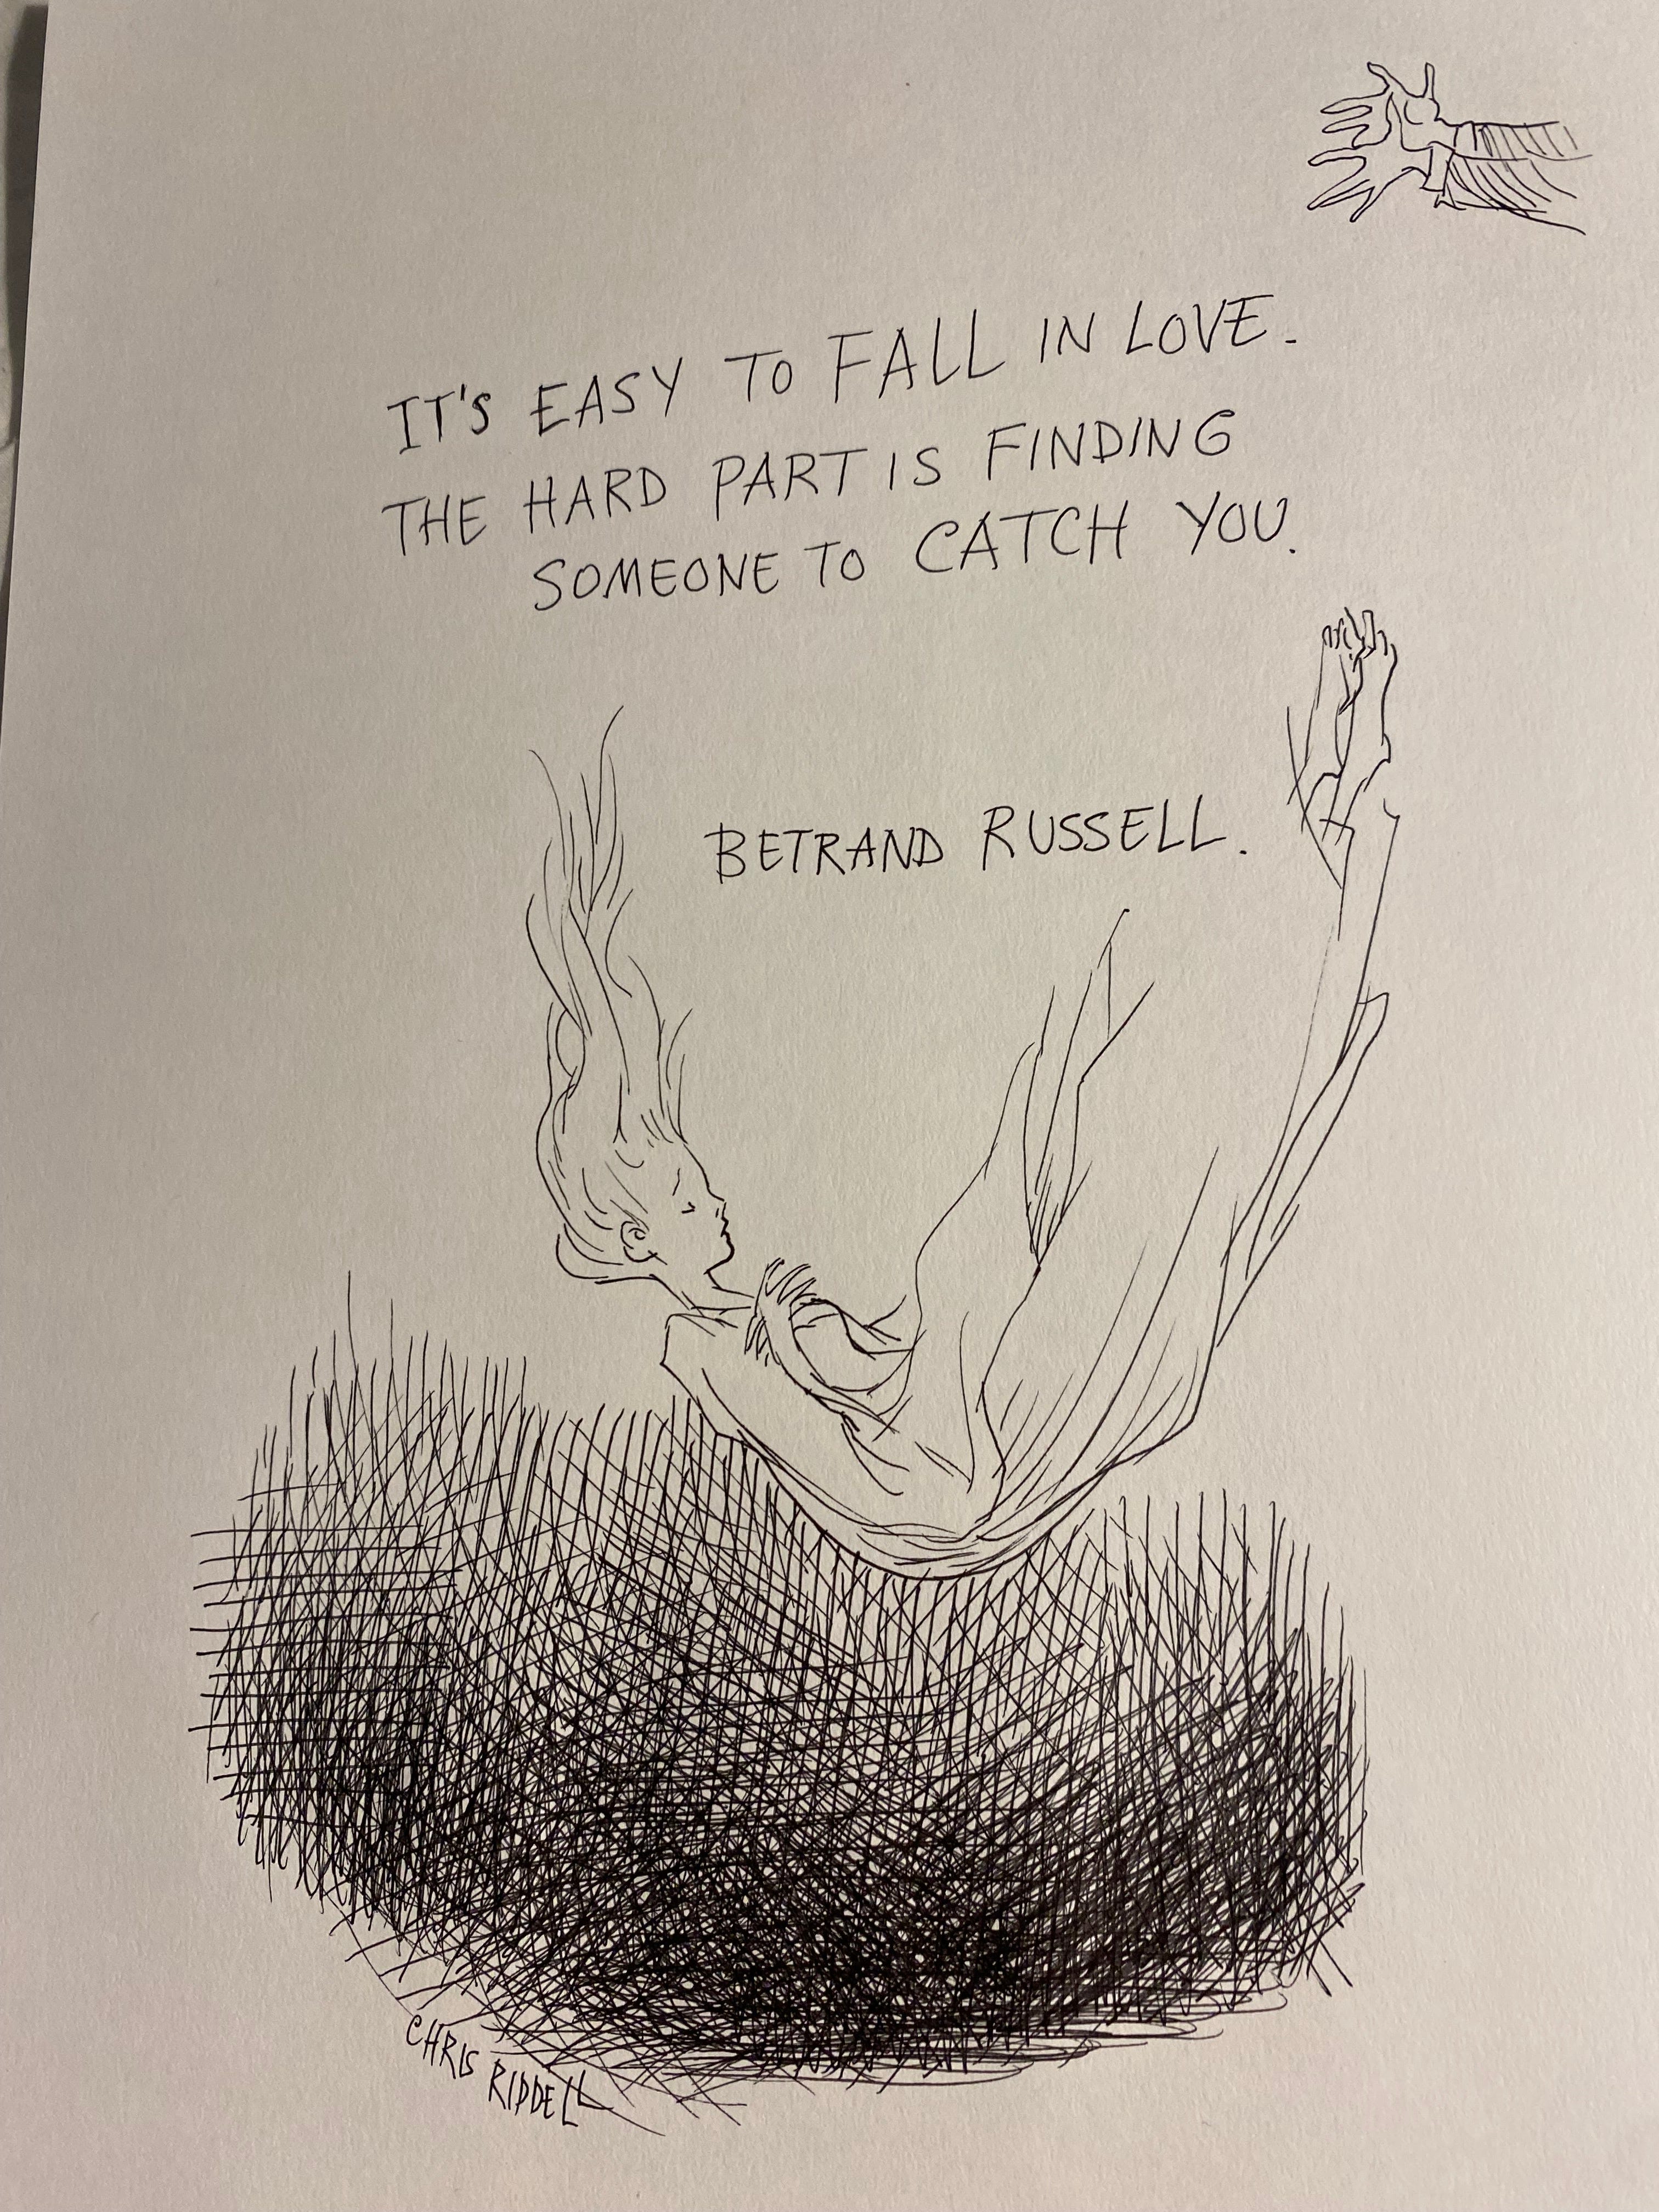 IT'S EASY TO FALL IN LOVE.
THE HARD PART IS FINDING
SOMEONE TO CATCH YOU.
BETRAND RUSSELL.
CHRIS RIDDELL